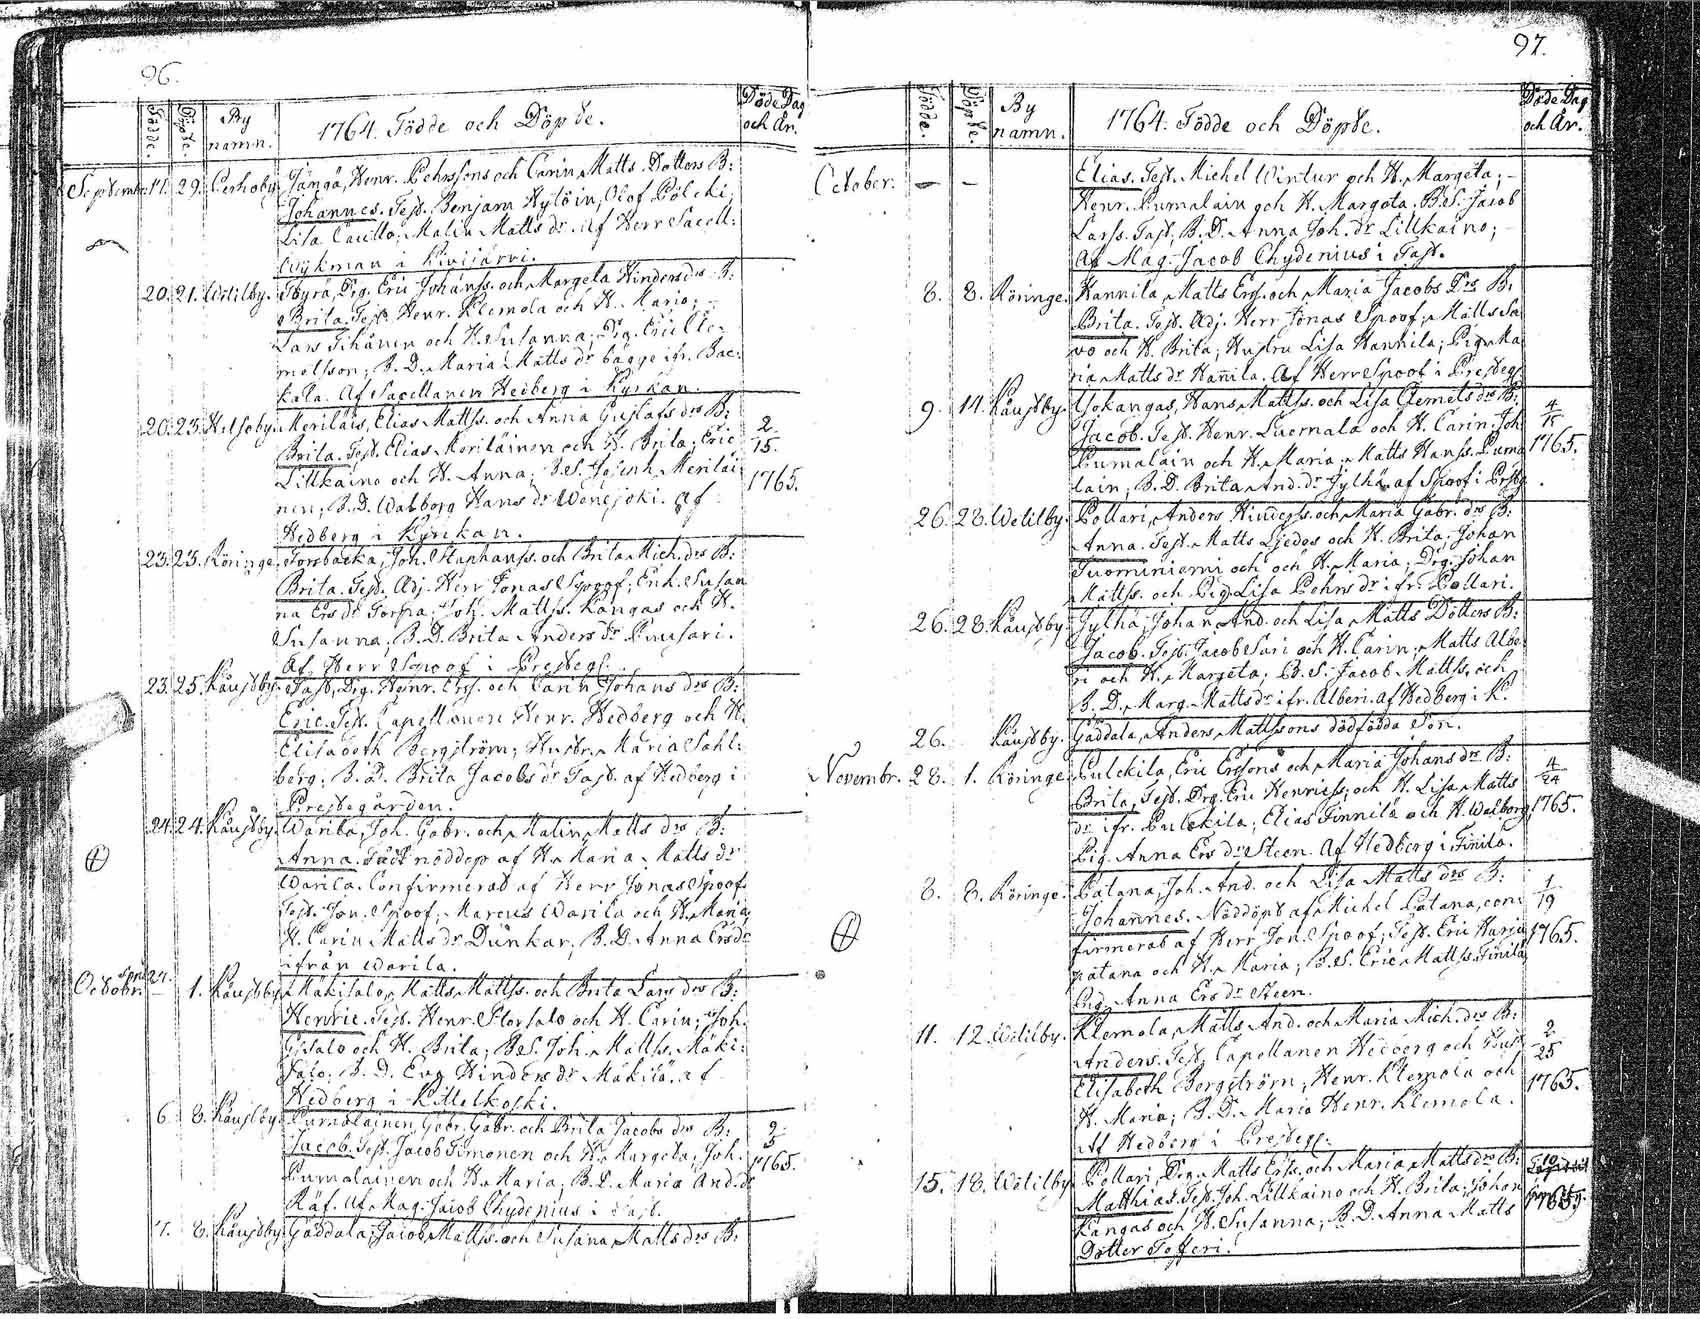 96.
Födde.
Döpte.
By
namn.
1764. Födde och Döpte.
Döde Dag
och År.
17. 29. Jänga, Henr. Pehrssons och Carin Matts Dotters B:
Johannes. Test. Benjam Hytöin, Olof Pölcki,
Lisa Malin Matts dr. Af Herr Sacell:
Wykman i Kivijärvi.
20. 21. Wetilby. Drg. Eric Johanss. och Margeta Hinders drs B:
Brita. Test. Henr. Klemola och H. Maria;
Lars och H. Susanna; Drg. Eric Cle-
metsson; B. D. Maria Matts dr bägge ifr. Bac-
kala. Af Sacellanen Hedberg i Kyrkan.
20. 23. Helsoby. Meriläis, Elias Mattss. och Anna Gustafs drs B: 2
Brita. Test. Elias Meriläinen och H. Brita; Eric 15.
Lillkaino och H. Anna; B. S. Joseph Meriläi 1765.
nen; B. D. Walborg Hans dr af
Hedberg i Kyrkan.
23. 23. Röringe. Torsbacka, Joh. Staphanss. och Brita Mich. drs B:
Brita. Test. Adj. Herr Jonas Spoof; Enk. Susan
na Ers dr Torpa; Joh. Mattss. Kangas och H.
Susanna; B. D. Brita Anders dr Puusari.
Af Herr Spoof i Prestegl.
23. 25. Kåustby. Tast, Drg. Henr. Erss. och Carin Johans drs B:
Eric. Test. Capellanen Henr. Hedberg och H.
Elisabeth Bergström; Hustr. Maria Sahl:
berg; B. D. Brita Jacobs dr Tast. af Hedberg i
Prestegården.
24. 24. Kåustby. Warila, Joh. Gabr. och Malin Matts drs B:
Anna. af H. Maria Matts dr
Warila. Confirmerad af Herr Jonas Spoof.
Test. Jon. Spoof; Marcus Warila och H. Maria
H. Carin Matts dr Dunkar; B. D. Anna Ers dr
ifrån Warila.
Octobr. 1. Kåustby. Mäkisalo, Matts Mattss. och Brita Lars drs B:
Henric. Test. Henr. Storsalo och H. Carin; Joh.
och H. Brita; B. S. Joh. Mattss. Mäki:
salo; B. D. Eva Hinders dr Mäkilä. af
Hedberg i Kittelkoski.
6. 8. Kåustby. Pumalainen, Gabr. Gabr. och Brita Jacobs drs B: 2
Jacob. Test. Jacob Timonen och H. Margeta; Joh. 5
Pumalainen och H. Maria; B. D. Maria And. dr 1765.
Räf. Af Mag. Jacob Chydenius i Tast.
7. 8. Kåustby. Gäddala, Jacob Mattss. och Susana Matts drs B:
97.
Födde.
Döpte.
By
namn.
1764. Födde och Döpte.
Döde Dag
och År.
October. – – Elias. Test. Michel Wintur och H. Margeta; –
Henr. Pumalain och H. Margeta. B. S. Jacob
Larss. Tast; B. D. Anna Joh. dr Lillkaino; –
Af Mag. Jacob Chydenius i Tast.
8. 8. Röringe. Hannila, Matts Erss. och Maria Jacobs Drs B:
Brita. Test. Adj. Herr Jonas Spoof; Matts Sa
vo och H. Brita; Hustru Lisa Hannila; Pig. Ma
ria Matts dr Hannila. Af Herr Spoof i Presteg.
9. 14. Kåustby. Isokangas, Hans Mattss. och Lisa Clemets drs B: 4
Jacob. Test. Henr. Luomala och H. Carin; Joh. 15
Pumalain och H. Maria; Matts Hanss. Puma 1765.
lain; B. D. Brita And. dr Jylhä af Spoof i
26. 28. Wetilby. Pollari, Anders Hinderss. och Maria Gabr. drs B:
Anna. Test. Matts Ljedes och H. Brita; Johan
Tuominiemi och och H. Maria; Drg. Johan
Mattss. och Pig. Lisa Pehrs dr ifr. Pollari.
26. 28. Kåustby. Jylhä, Johan And. och Lisa Matts Dotters B:
Jacob. Test. Jacob Sari och H. Carin; Matts Albe
ri och H. Margeta; B. S. Jacob Mattss. och
B. D. Marg. Matts dr ifr. Alberi. af Hedberg i K.
26. Kåustby. Gäddala, Anders Mattssons dödfödda Son.
Novembr. 28. 1. Röringe. Pulckila, Eric Erssons och Maria Johans drs B: 4
Brita. Test. Drg. Eric Henricss. och H. Lisa Matts 24
dr ifr. Pulckila; Elias Finnilä och H. Walborg 1765.
Pig. Anna Ers dr Steen. Af Hedberg i Finnilä.
8. 8. Röringe. Patana, Joh. And. och Lisa Matts drs B: 1
Johannes. Nöddöpt af Michel Patana, con: 19
firmerad af Herr Jon. Spoof; Test. Eric 1765.
Patana och H. Maria; B. S. Eric Mattss. Finilä
Pig. Anna Ers dr Steen.
11. 12. Wetilby. Klemola, Matts And. och Maria Mich. drs B: 2
Anders. Test. Capellanen Hedberg och Hust. 25
Elisabeth Bergström; Henr. Klemola och 1765.
H. Maria; B. D. Maria Henr. Klemola.
Af Hedberg i Prestegl.
15. 18. Wetilby. Pollari, Drg. Matts Erss. och Maria Matts drs B:
Matthias. Test. Joh. Lillkaino och H. Brita; Johan
Kangas och H. Susanna; B. D. Anna Matts
Dotter Tofferi.